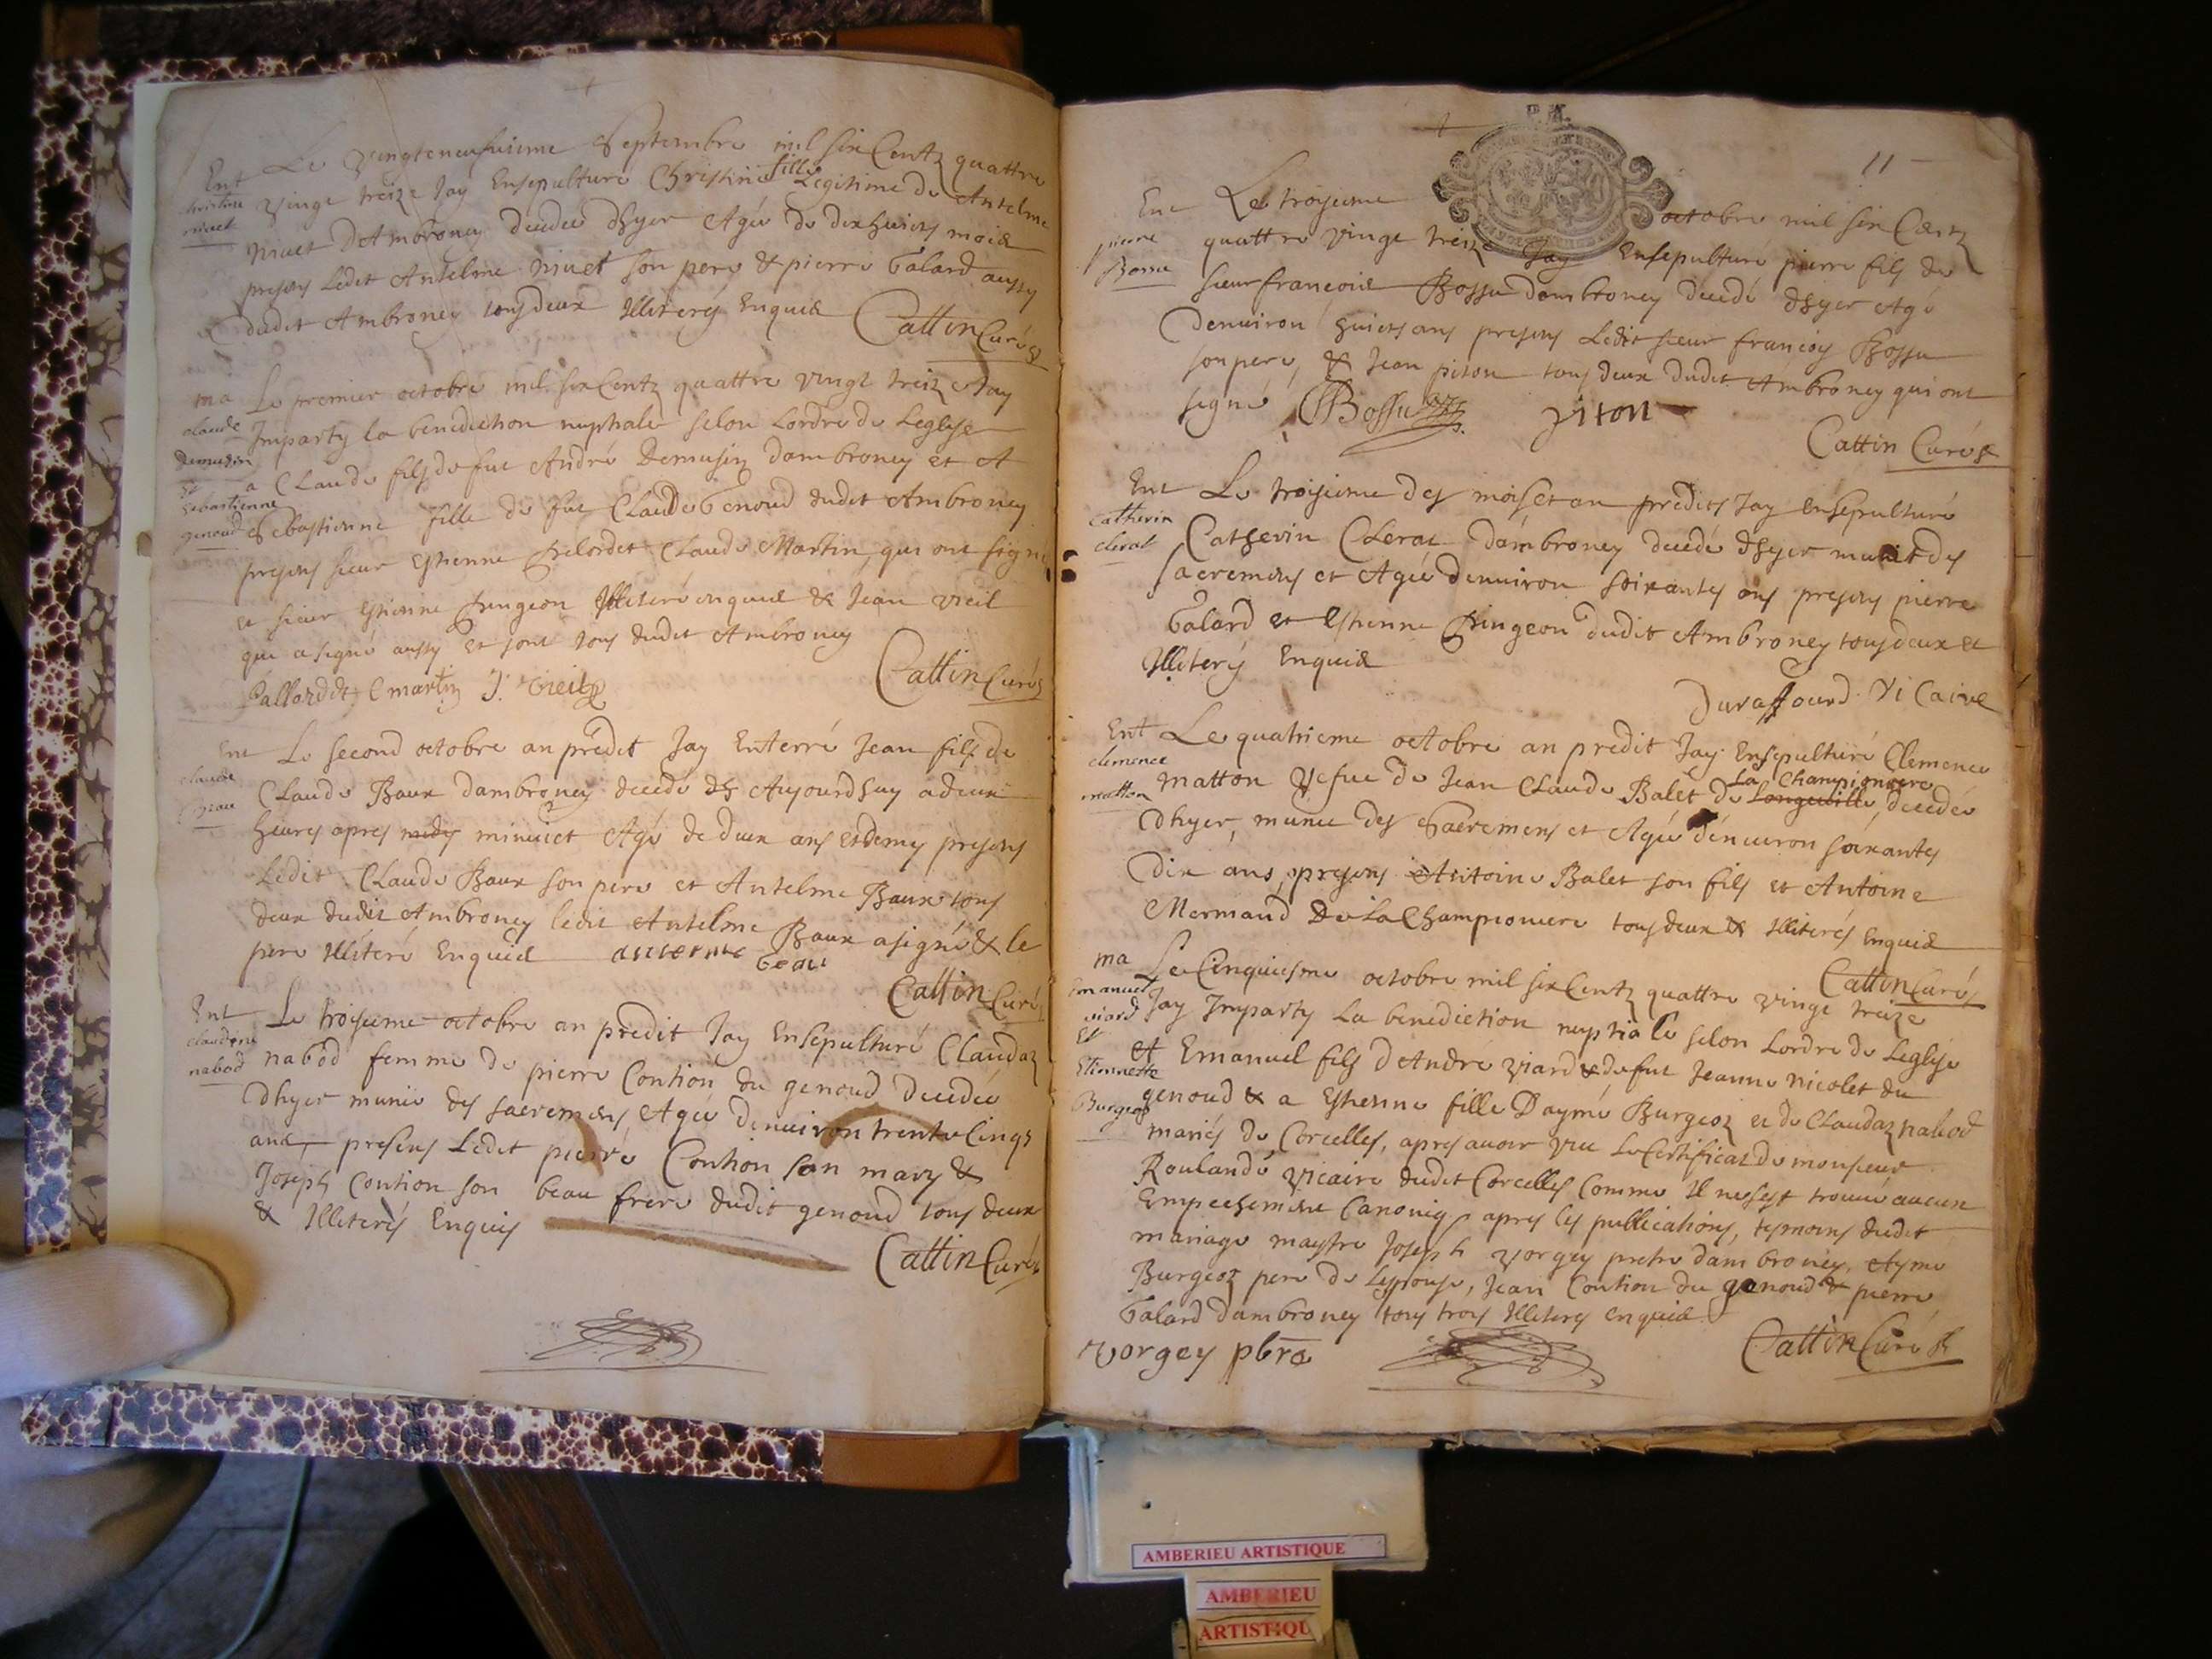 Ent
christine
nivet
Le vingteneufuieme Septembre mil six Centz quattre
vingt treize Jay Ensepulturé Christine fille Legitime de Antelme
nivet dAmbroney decedee dhyer Agée de dixhuicts mois
presens Ledit Antelme nivet son pere & pierre Galard aussy
dudit Ambroney tous deux Illiterés Enquis
Cattin Curé
ma
claude
Demusin
et
sebastienne
genoud
Le premier octobre mil six Centz quattre vingt treize Jay
Imparty la benediction nuptiale selon Lordre de Leglise
a Claude fils de fut André Demusin dambroney et A
Sebastienne fille de fut Claude Genoud dudit Ambroney
presens sieur Estienne Claude Martin, qui ont signé
et sieur Estienne Illiteré enquis & Jean vieil
qui a signé aussy et sont tous dudit Ambroney
C martin J. vieil
Cattin Curé
Ent
claude
Le second octobre an prédit Jay Enterré Jean fils de
Claude Baux dambroney decedé dez Aujourdhuy a deux
heures apres midy minuict Agé de deux ans et demy presens
Ledit Claude Baux son pere et Antelme Baux tous
deux dudit Ambroney ledit Antelme Baux a signé & le
pere Illiteré Enquis antelme beau
Cattin Curé
Ent
claudine
nabod
Le troisieme octobre an prédit Jay Ensepulturé Claudaz
nabod femme de pierre Contion du genoud decedée
dhyer munie des sacremens Agée denuiron trente Cinq
ans, presens Ledit pierre Contion son mary &
Joseph Contion son beau frere dudit genoud tous deux
& Illiterés Enquis
Cattin Curé
11
Ent
pierre
Bossu
Le troisieme octobre mil six Centz
quattre vingt treize Jay Ensepulturé pierre fils de
sieur francois Bossu dambroney decedé dhyer Agé
denuiron huicts ans presens Ledit sieur francois Bossu
son pere, & Jean piton tous deux dudit Ambroney qui ont
signé Bossu piton
Cattin Curé
Ent
Catherin
clerat
Le troisieme des mois et an predits Jay Ensepulturé
Catherin Clerat dambroney decedé dhyer munit des
sacremens et Agée denuiron soixantes ans presens pierre
Galard et Estienne dudit Ambroney tous deux et
Illiterés Enquis
Duraffourd Vicaire
Ent
clemence
matton
Le quatrieme octobre an predit Jay Ensepulturé Clemence
matton Vefue de Jean Claude Balet de Longeville La Championiere, decedée
dhyer, munie des Sacremens et Agée denuiron soixantes
Dix ans, presens Antoine Balet son fils et Antoine
Mermand De La Championiere tous deux & Illiterés Enquis
Cattin Curé
ma
Emanuel
viard
Et
Etiennette
Burgeoz
Le Cinquiesme octobre mil six Centz quattre vingt treize
Jay Imparty La benediction nuptiale selon Lordre de Leglise
A Emanuel fils dAndré viard & de fut Jeanne nicolet du
genoud & a Estienne fille Daymé Burgeoz et de Claudaz nabod
mariés de Corcelles, apres auoir vu le Certificat de monsieur
Roulande vicaire dudit Corcelles Comme Il ne sest trouué aucun
Empechement Canonig apres les publications, tesmoins dudit
mariage maystre Joseph vorgey pretre dambroney, Aymé
Burgeoz pere de Lespouse, Jean Contion du genoud & pierre
Galard dambroney tous trois Illiterés enquis
vorgey pbre
Cattin Curé
AMBERIEU ARTISTIQUE
AMBERIEU
ARTISTIQU